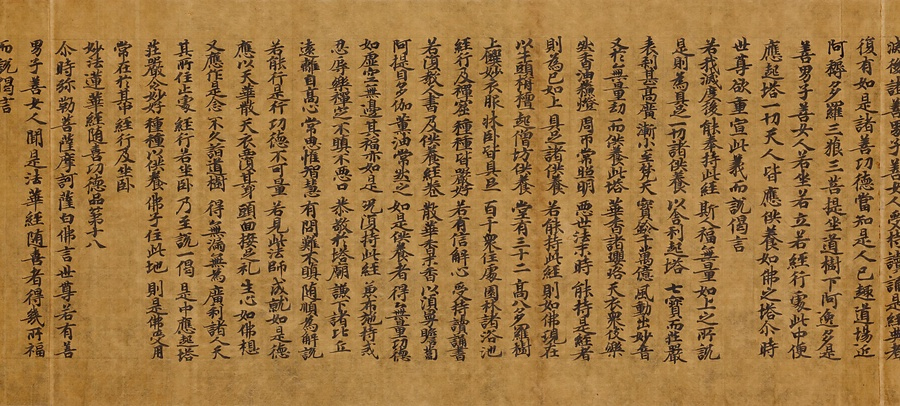 滅後諸善男子善女人受持讀誦是經典者
復有如是諸善功德當知是人已趣道場近
阿耨多羅三藐三菩提坐道樹下阿逸多是
善男子善女人若坐若立若經行處此中便
應起塔一切天人皆應供養如佛之塔尒時
世尊欲重宣此義而說偈言
若我滅度後 能奉持此經 斯人福無量 如上之所說
是則為具足 一切諸供養 以舍利起塔 七寶而莊嚴
表剎甚高廣 漸小至梵天 寶鈴千萬億 風動出妙音
又於無量劫 而供養此塔 華香諸瓔珞 天衣眾伎樂
燃香油蘇燈 周帀常照明 惡世法末時 能持是經者
則為已如上 具足諸供養 若能持此經 則如佛現在
以牛頭栴檀 起僧坊供養 堂有三十二 高八多羅樹
上饌妙衣服 床臥皆具足 百千眾住處 園林諸浴池
經行及禪窟 種種皆嚴好 若有信解心 受持讀誦書
若復教人書 及供養經卷 散華香末香 以須曼瞻蔔
阿提目多伽 薰油常燃之 如是供養者 得無量功德
如虛空無邊 其福亦如是 況復持此經 兼布施持戒
忍辱樂禪定 不瞋不惡口 恭敬於塔廟 謙下諸比丘
遠離自高心 常思惟智慧 有問難不瞋 隨順為解說
若能行是行 功德不可量 若見此法師 成就如是德
應以天華散 天衣覆其身 頭面接足礼 生心如佛想
又應作是念 不久詣道樹 得無漏無為 廣利諸人天
其所住止處 經行若坐臥 乃至說一偈 是中應起塔
莊嚴令妙好 種種以供養 佛子住此地 則是佛受用
常在於其中 經行及坐臥
妙法蓮華經隨喜功德品第十八
尒時弥勒菩薩摩訶薩白佛言世尊若有善
男子善女人聞是法華經隨喜者得幾所福
而說偈言